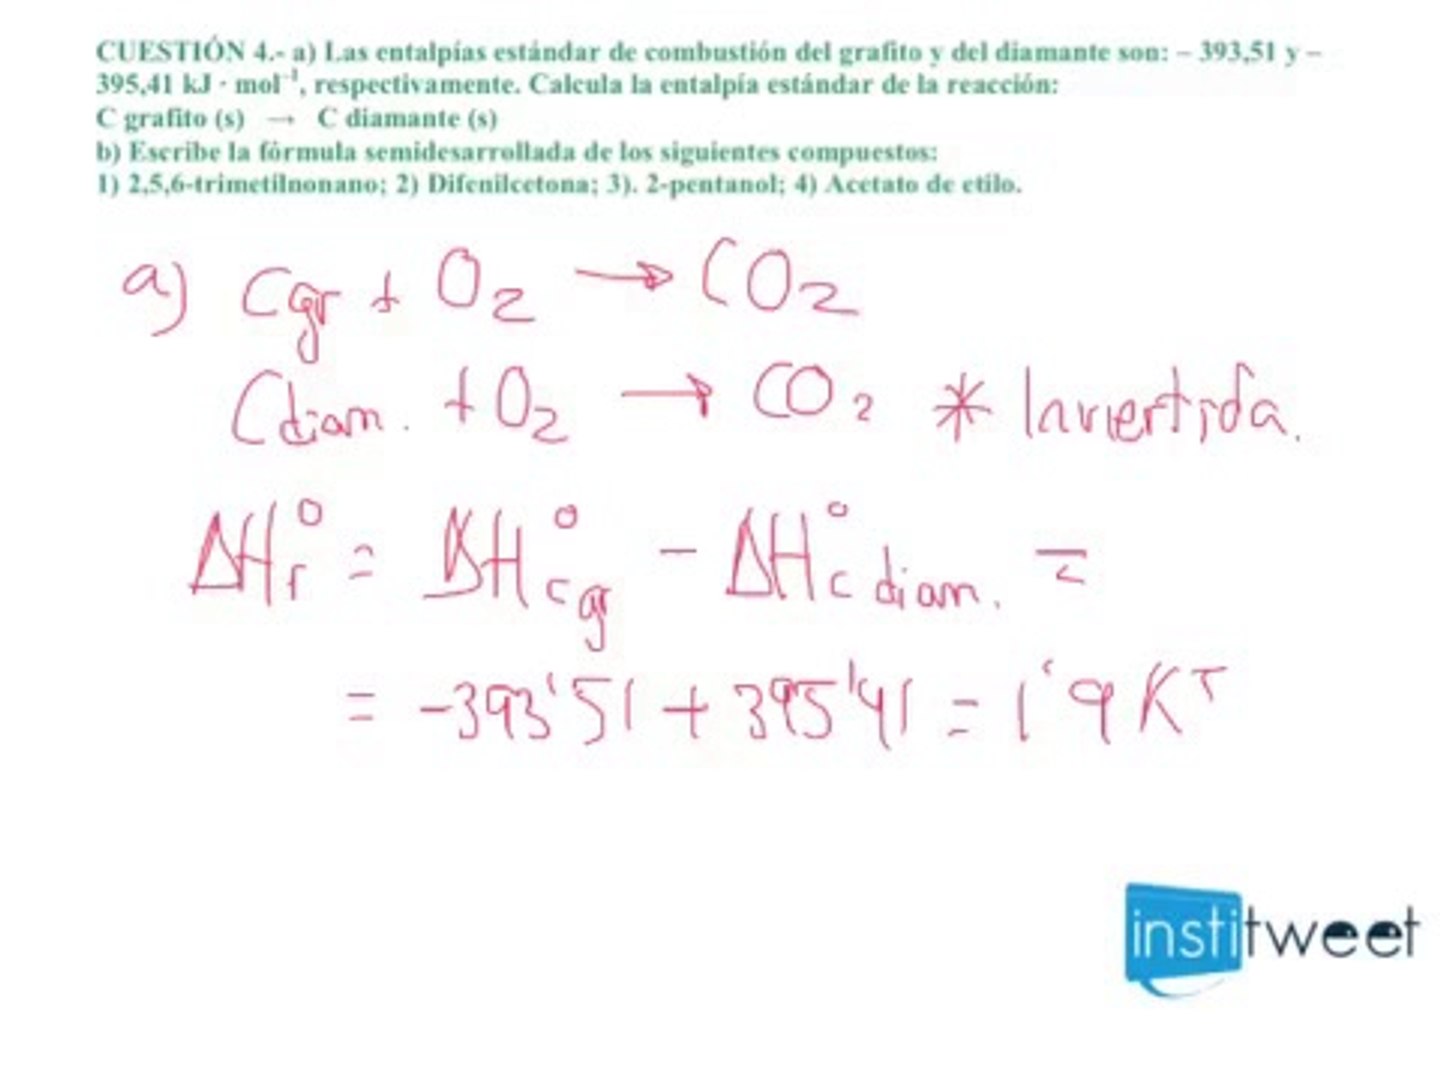 CUESTIÓN 4.- a) Las entalpías estándar de combustión del grafito y del diamante son: – 393,51 y –
395,41 kJ · mol⁻¹, respectivamente. Calcula la entalpía estándar de la reacción:
C grafito (s) → C diamante (s)
b) Escribe la fórmula semidesarrollada de los siguientes compuestos:
1) 2,5,6-trimetilnonano; 2) Difenilcetona; 3). 2-pentanol; 4) Acetato de etilo.
a) Cgr + O2 → CO2
Cdiam. + O2 → CO2 * Invertida.
ΔHr° = ΔH°c gr – ΔH°c diam. =
= -393'51 + 395'41 = 1'9 KJ
institweet